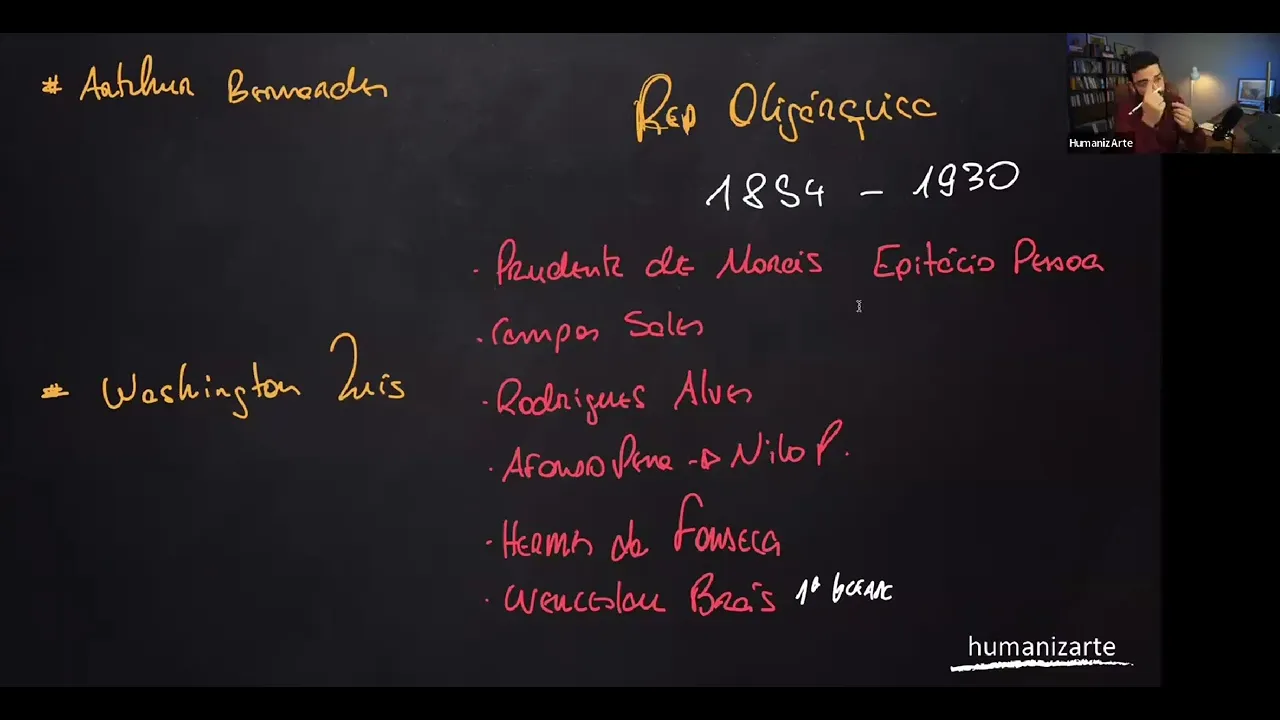 # Arthur Bernardes
Rep Oligárquica
HumanizArte
1894 - 1930
. Prudente de Morais Epitácio Pessoa
. Campos Sales
# Washington Luis
. Rodrigues Alves
. Afonso Pena -> Nilo P.
. Hermes da Fonseca
. Wenceslau Brás 1ª Guerra
humanizarte